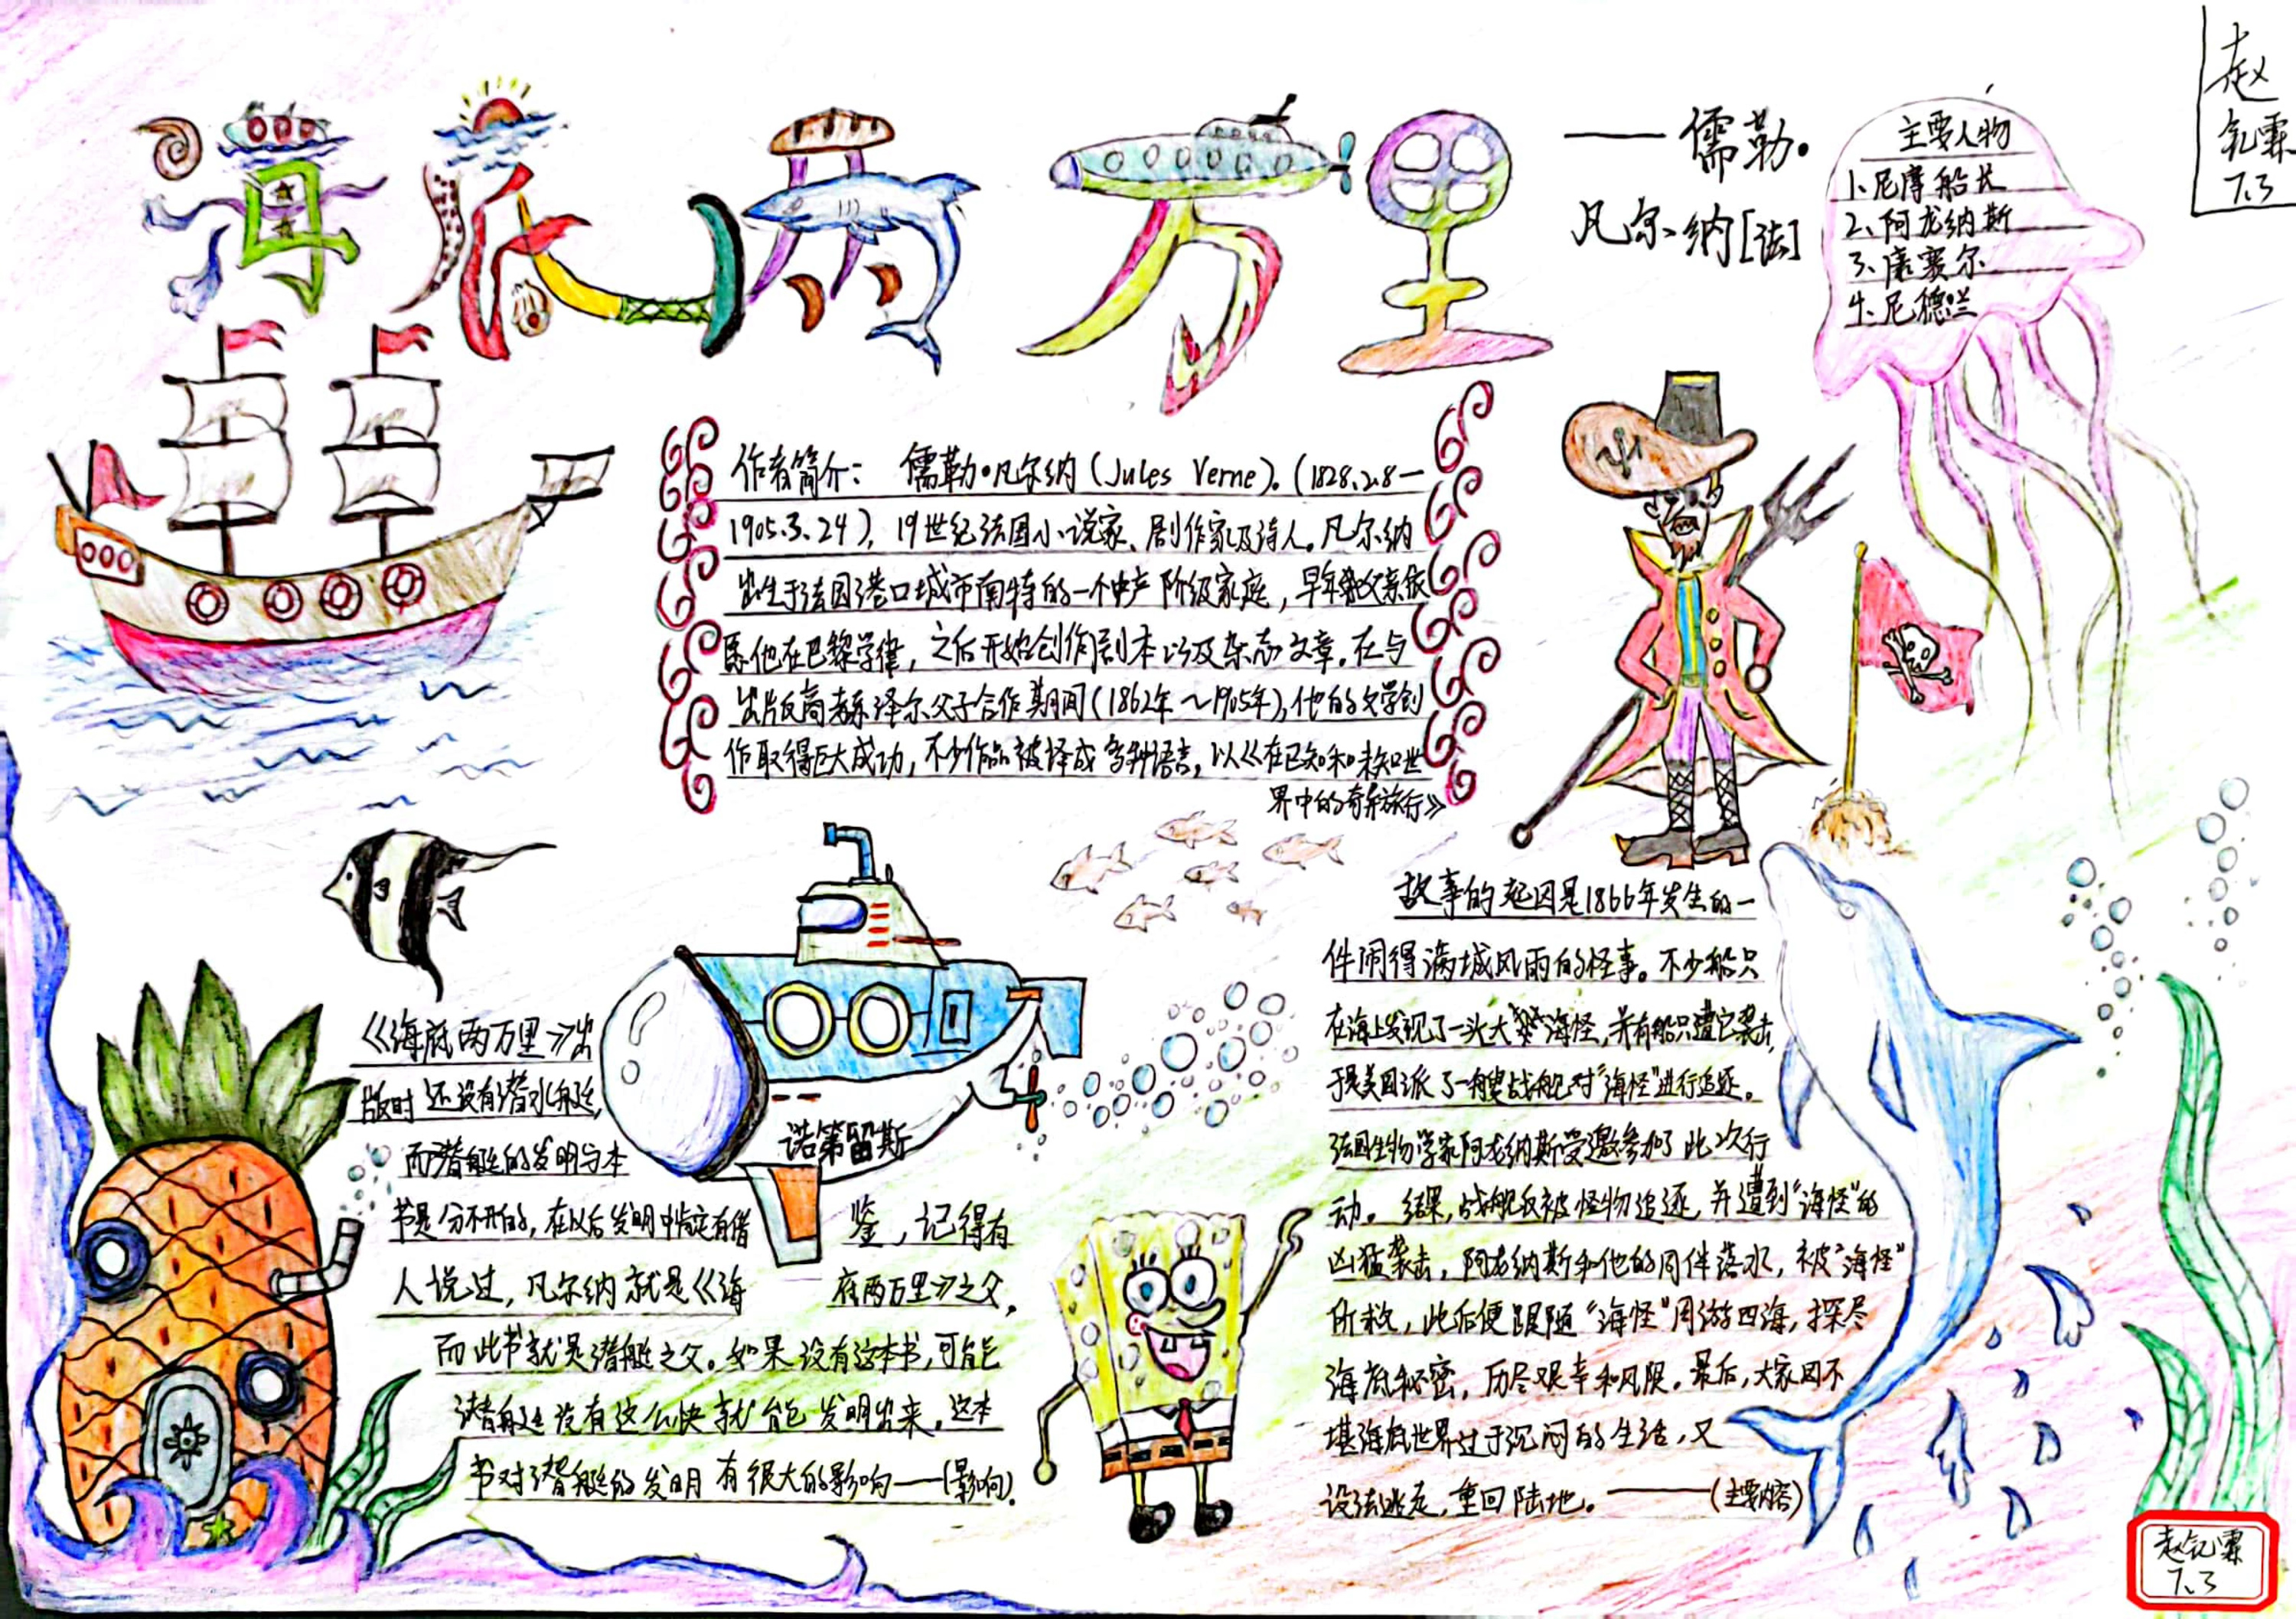 海底两万里
——儒勒·
凡尔纳[法]
赵
钇霖
7.3
主要人物
1、尼摩船长
2、阿龙纳斯
3、康塞尔
4、尼德兰
作者简介: 儒勒·凡尔纳(Jules Verne)。(1828.2.8—
1905.3.24), 19世纪法国小说家、剧作家及诗人。凡尔纳
出生于法国港口城市南特的一个中产阶级家庭, 早年
他在巴黎学律, 之后开始创作剧本以及杂志文章。在与
出版
作取得巨大成功, 不少作品被译成多种语言, 以《在已知和未知世
界中的奇异旅行》
《海底两万里》出
版时还没有潜水艇,
而潜艇的发明与本
书是分不开的, 在以后发明中肯定有借
鉴, 记得有
人说过, 凡尔纳就是《海
底两万里》之父,
而此书就是潜艇之父。如果没有这本书, 可能
潜艇没有这么快就能发明出来。这本
书对潜艇的发明有很大的影响——(影响)。
诺第留斯
故事的起因是1866年发生的一
件闹得满城风雨的怪事。不少船只
在海上发现了一头大海怪, 并有船只遭它袭击,
于是美国派了一艘战舰对“海怪”进行追逐。
法国生物学家阿龙纳斯受邀参加了此次行
动。结果, 战舰反被怪物追逐, 并遭到“海怪”的
凶猛袭击, 阿龙纳斯和他的同伴落水, 被“海怪”
所救, 此后便跟随“海怪”周游四海, 探尽
海底秘密, 历尽艰辛和风险。最后, 大家因不
堪海底世界过于沉闷的生活, 又
设法逃走, 重回陆地。——(主要内容)
赵钇霖
7.3